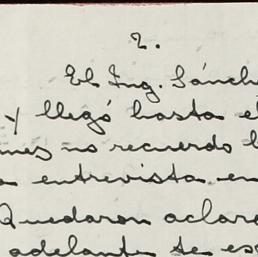 2.
El Ing. Sánche
y llegó hasta el
no recuerdo
entrevista en
Quedaron aclara
adelante te es